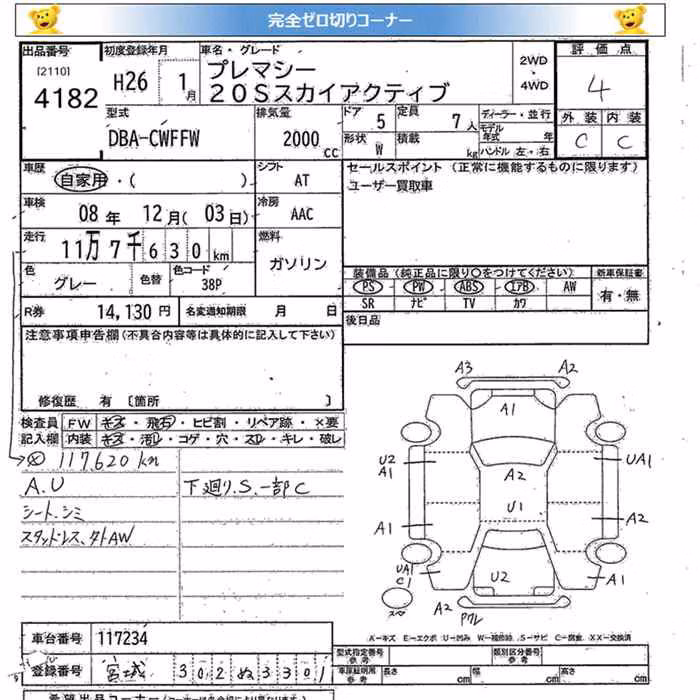 完全ゼロ切りコーナー
出品番号 初度登録年月 車名・グレード 2WD 評価点
[2110] H26 1月 プレマシー 4WD 4
4182 20Sスカイアクティブ
型式 排気量 ドア 5 定員 7人 ディーラー・並行 外装 内装
DBA-CWFFW 2000cc 形状 W 積載 kg モデル年式 年 C C
ハンドル 左・右
車歴 シフト セールスポイント (正常に機能するものに限ります)
自家用・( ) AT ユーザー買取車
車検 冷房
08年 12月(03日) AAC
走行 燃料
11万7千630km ガソリン
色 色替 色コード 装備品(純正品に限り○をつけてください) 新車保証書
グレー 38P PS PW ABS エアB AW 有・無
R券 14,130円 名変通知期限 月 日 SR ナビ TV カワ
注意事項申告欄(不具合内容等は具体的に記入して下さい) 後日品
修復歴 有 〔箇所 〕
検査員 FW キズ・飛石・ヒビ割・リペア跡・×要
記入欄 内装 キズ・汚レ・コゲ・穴・スレ・キレ・破レ
117620km
A.U 下廻りS.一部C
シート、シミ
スタッドレス、タトAW
A3 A2
A1
U2 A1 A2 UA1
U1
A1 A2
UA1 C1 U2 A1
スペア A2 Pクレ
A-キズ E-エクボ U-凹み W-補修跡 S-サビ C-腐食 XX-交換済
車台番号 117234 型式指定番号 参考 類別区分番号 参考
登録番号 宮城 302ぬ3301 車庫証明用 参考 長さ cm 幅 cm 高さ cm
希望出品コーナー